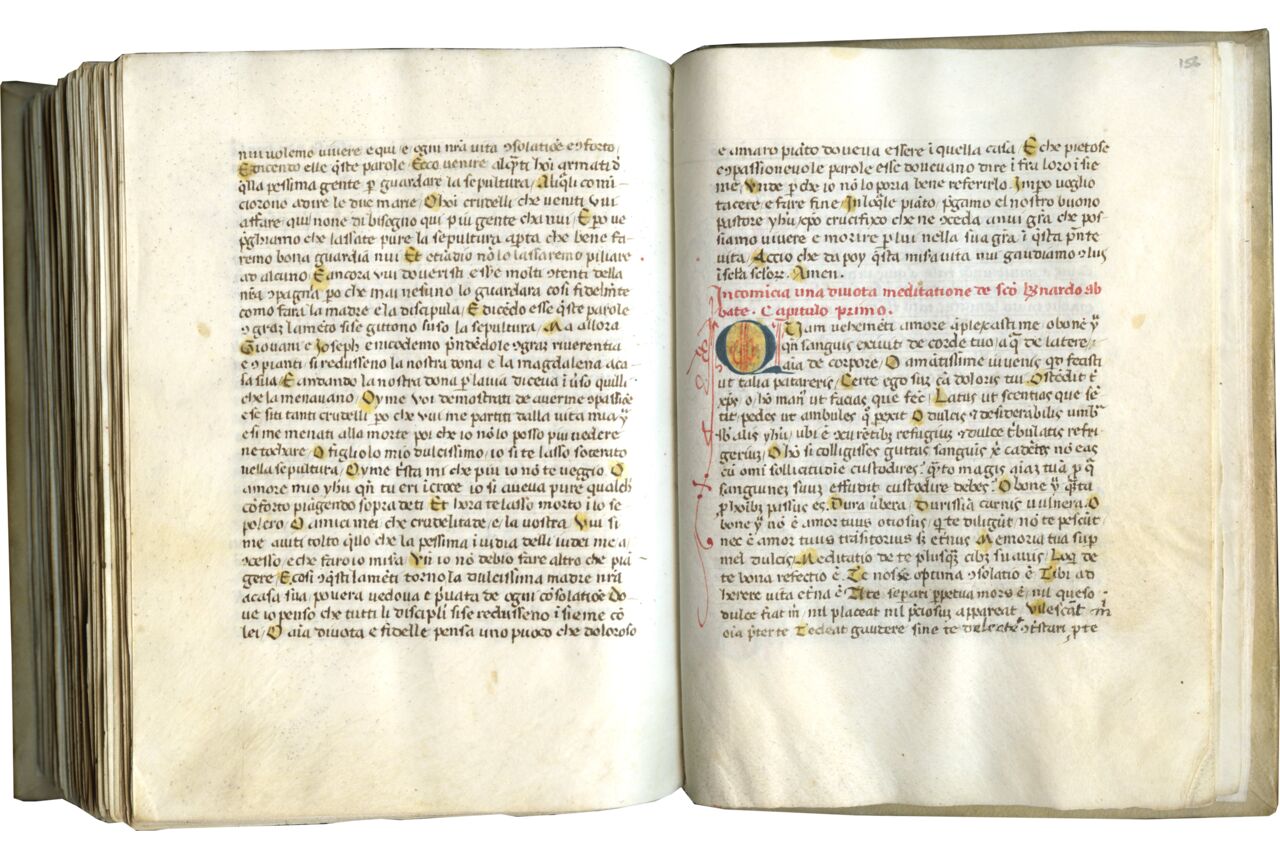 nui volemo vivere e qui e ogni nr̃a vita ꝯsolatiõe e ꝯforto
E dicento elle q̃ste parole Ecco venire alq̃ti hoĩ armati đ
q̃lla pessima gente ꝑ guardare la sepultura Aliq̃li comi–
ciorono a dire le due marie O hoi crudelli che veniti vui
affare qui none di bisegno qui piu gente cha nui E ꝑo ve
p̃ghiamo che lassate pure la sepultura apta che bene fa–
remo bona guardia nui Et etiãdio nõ lo lassaremo piliare
ad alcuno Emcora vui doveristi esse molti ꝯtenti della
nr̃a ꝯpagnia ꝑo che mai nesuno lo guardara cosi fidelm̃te
como fara la madre e la discipula E dicẽdo esse q̃ste parole
ꝯ grãr lamẽto si se gittono suso la sepultura Ma allora
Giovani e Joseph e nicodemo p̃ndẽdole ꝯ grãr riverentia
e ꝯ pianti si redusseno la nostra dona e la magdalena aca–
sa sua E andando la nostra dona ꝑ la via diceva ĩ vso quilli
che la menavano Oyme voi demostrati de averme ꝯpassiõe
e se siti tanti crudelli ꝑo che vui me partiti dalla vita mia y̅
e si me menati alla morte poi che io nõ lo posso piu vedere
ne tochare O figliolo mio dulcissimo io si te lasso soterato
nella sepultura Oyme t̃sta mi che piu io nõ te veggio O
amore mio yhu qñ tu eri ĩ croce io si aveva pure qualch
cõforto piagendo sopra de ti Et hora te lasso morto ĩ lo se
polcro O amici mei che crudelitade e la vostra Vui si
me aviti tolto q̃llo che la pessima ĩvidia delli iudei me a
ꝯcesso e che faro io misa Vñ io nõ debio fare altro che piã
gere E cosi ꝯ q̃sti lamẽti torno la dulcissima madre nr̃a
a casa sua povera vedova e p̃vata de ogni cõsolatiõe Do
ve io penso che tutti li discipli si se redusseno ĩsieme cõ
lei O aĩa divota e fidelle pensa uno puoco che doloroso
156
e amaro piãto doveva essere ĩ quella casa E che pietose
ꝯpassionevole parole esse dovevano dire ĩ fra loro ĩsie
me Vnde ꝑ che io nõ lo poria bene referirlo Impo voglio
tacere e fare fine In lo q̃le piãto p̃gamo el nostro buono
pastore yhũ xp̃o crucifixo che ne ꝯceda a nui gr̃a che pos–
siamo vivere e morire ꝑ lui nella sua gr̃a ĩ q̃sta p̃nte
vita Accio che da poy q̃sta misa vita nui gaudiamo ꝯ lui
ĩ sc̃la sc̃lorʒ. Amen.
Incomicia una divota meditatione de scõ B̃nardo ab
bate. Capitulo primo.
Quam vehemẽti amore q̃plexasti me o bone y̅
qñ sanguis exivit de corde tuo aq̃ de latere
aĩa de corpore O amãtissime iuvenis qd fecisti
ut talia patareris Certe ego suʒ cã doloris tui Ostẽdit t̃
xp̃s o hõ man⁹ ut facias que fec̃ Latus ut scentias que sẽ
tit pedes ut ambules q̃ pexit O dulcis ⁊ desiderabilis umb̃
sb̃ alis yhu ubi ẽ ꝯcurẽtibʒ refugiũ ⁊ dulce t̃bulatis refri
geriũ O hõ si colligisses guttas sanguis x̃ cadẽtes nõ eas
cũ omi sollicitudie custodires q̃to magis aiaʒ tuã ꝑ q̃
sanguineʒ suuʒ effudit custodire debes O bone y̅ q̃ta
ꝑ hoibʒ passus es Dura ũbera Durissĩa carnis vulnera O
bone y̅ nõ ẽ amor tuus otiosus q te diligũt nõ te pescũt
nec ẽ amor tuus trãsitorius sʒ et̃nus Memoria tua sup
mel dulcis Meditatio de te plusqʒ cibʒ suavis Loq̃ de
te bona refectio ẽ Te nosse optima ꝯsolatio ẽ Tibi ad
herere vita et̃na ẽ A te separi ꝑpetua mors ẽ nil queso
dulce fiat m̃ nil placeat nil p̃ciosuʒ appareat Vilescãt m̃
oĩa p̃ter te Tedeat gaudere sine te dulectet ꝯt̃stari ꝑ te